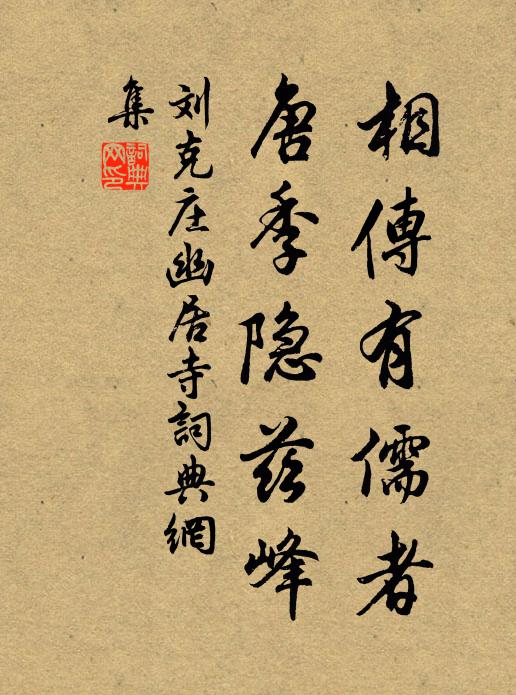 相傳有儒者
唐季隐茲峰
刘克庄幽居寺詞典網
集
詞典網印